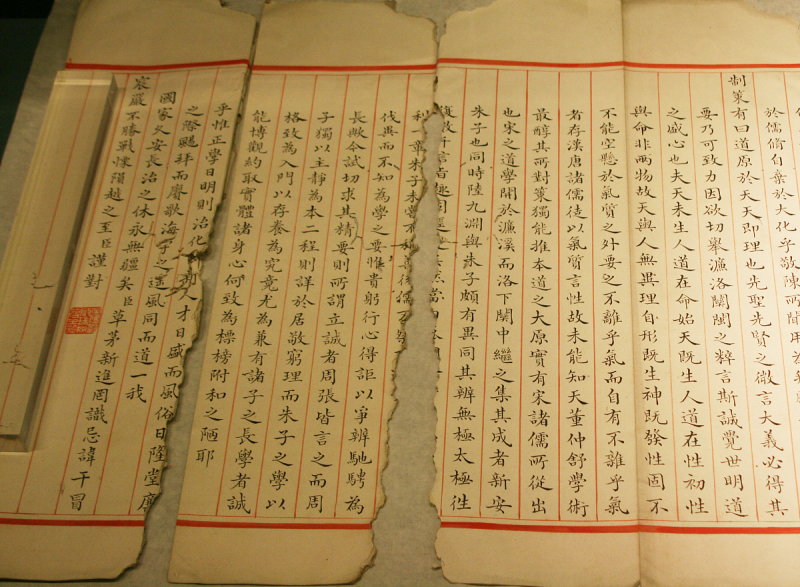 於儒脩自棄於大化乎敬陳所聞用為
制策有曰道原於天天即理也先聖先賢之微言大義必得其
要乃可致力因欲切舉濂洛關閩之粹言斯誠覺世明道
之盛心也夫天未生人道在命始天既生人道在性初性
與命非兩物故天與人無異理自形既生神既發性固不
不能空懸於氣質之外要之不離乎氣而自有不離乎氣
者存漢唐諸儒徒以氣質言性故未能知天董仲舒學術
最醇其所對策獨能推本道之大原實有宋諸儒所從出
也宋之道學開於濂溪而洛下關中繼之集其成者新安
朱子也同時陸九淵與朱子頗有異同其辨無極太極往
利一章朱子未嘗不
伐異而不知為學之要惟貴躬行心得詎以爭辨馳騁為
長歟今試切求其精要則所謂立誠者周張皆言之而周
子獨以主靜為本二程則詳於居敬窮理而朱子之學以
格致為入門以存養為究竟尤為兼有諸子之長學者誠
能博觀約取實體諸身心何致為標榜附和之陋耶
乎惟正學日明則治化人才日盛而風俗日隆堂廉
之際颺拜而賡歌海宇之遙風同而道一我
國家久安長治之休永無疆矣臣草茅新進罔識忌諱干冒
宸嚴不勝戰慄隕越之至臣謹對